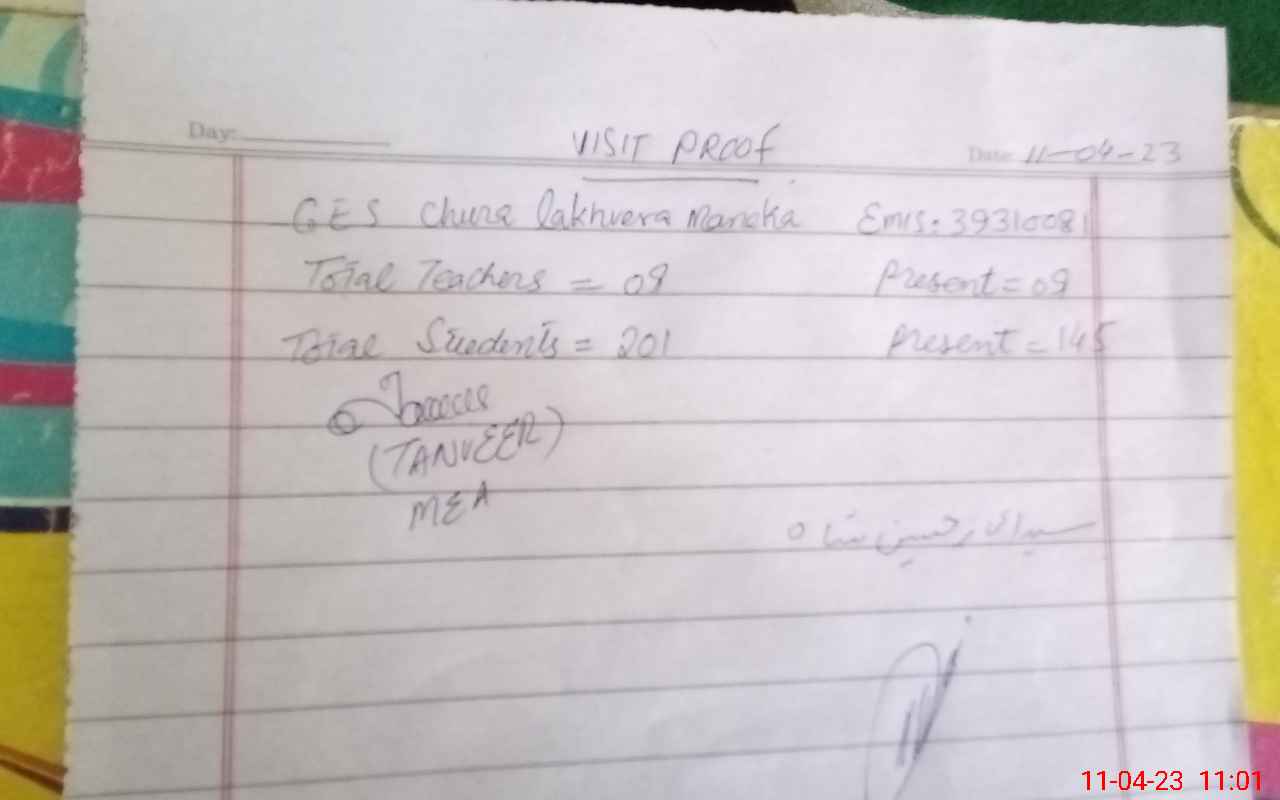 Day: VISIT PROOF Date: 11-04-23
GES Chura lakhwera Maneka Emis. 39310081
Total Teachers = 09 Present = 09
Total Students = 201 Present = 145
(TANVEER)
MEA
حسین شاہ
11-04-23 11:01